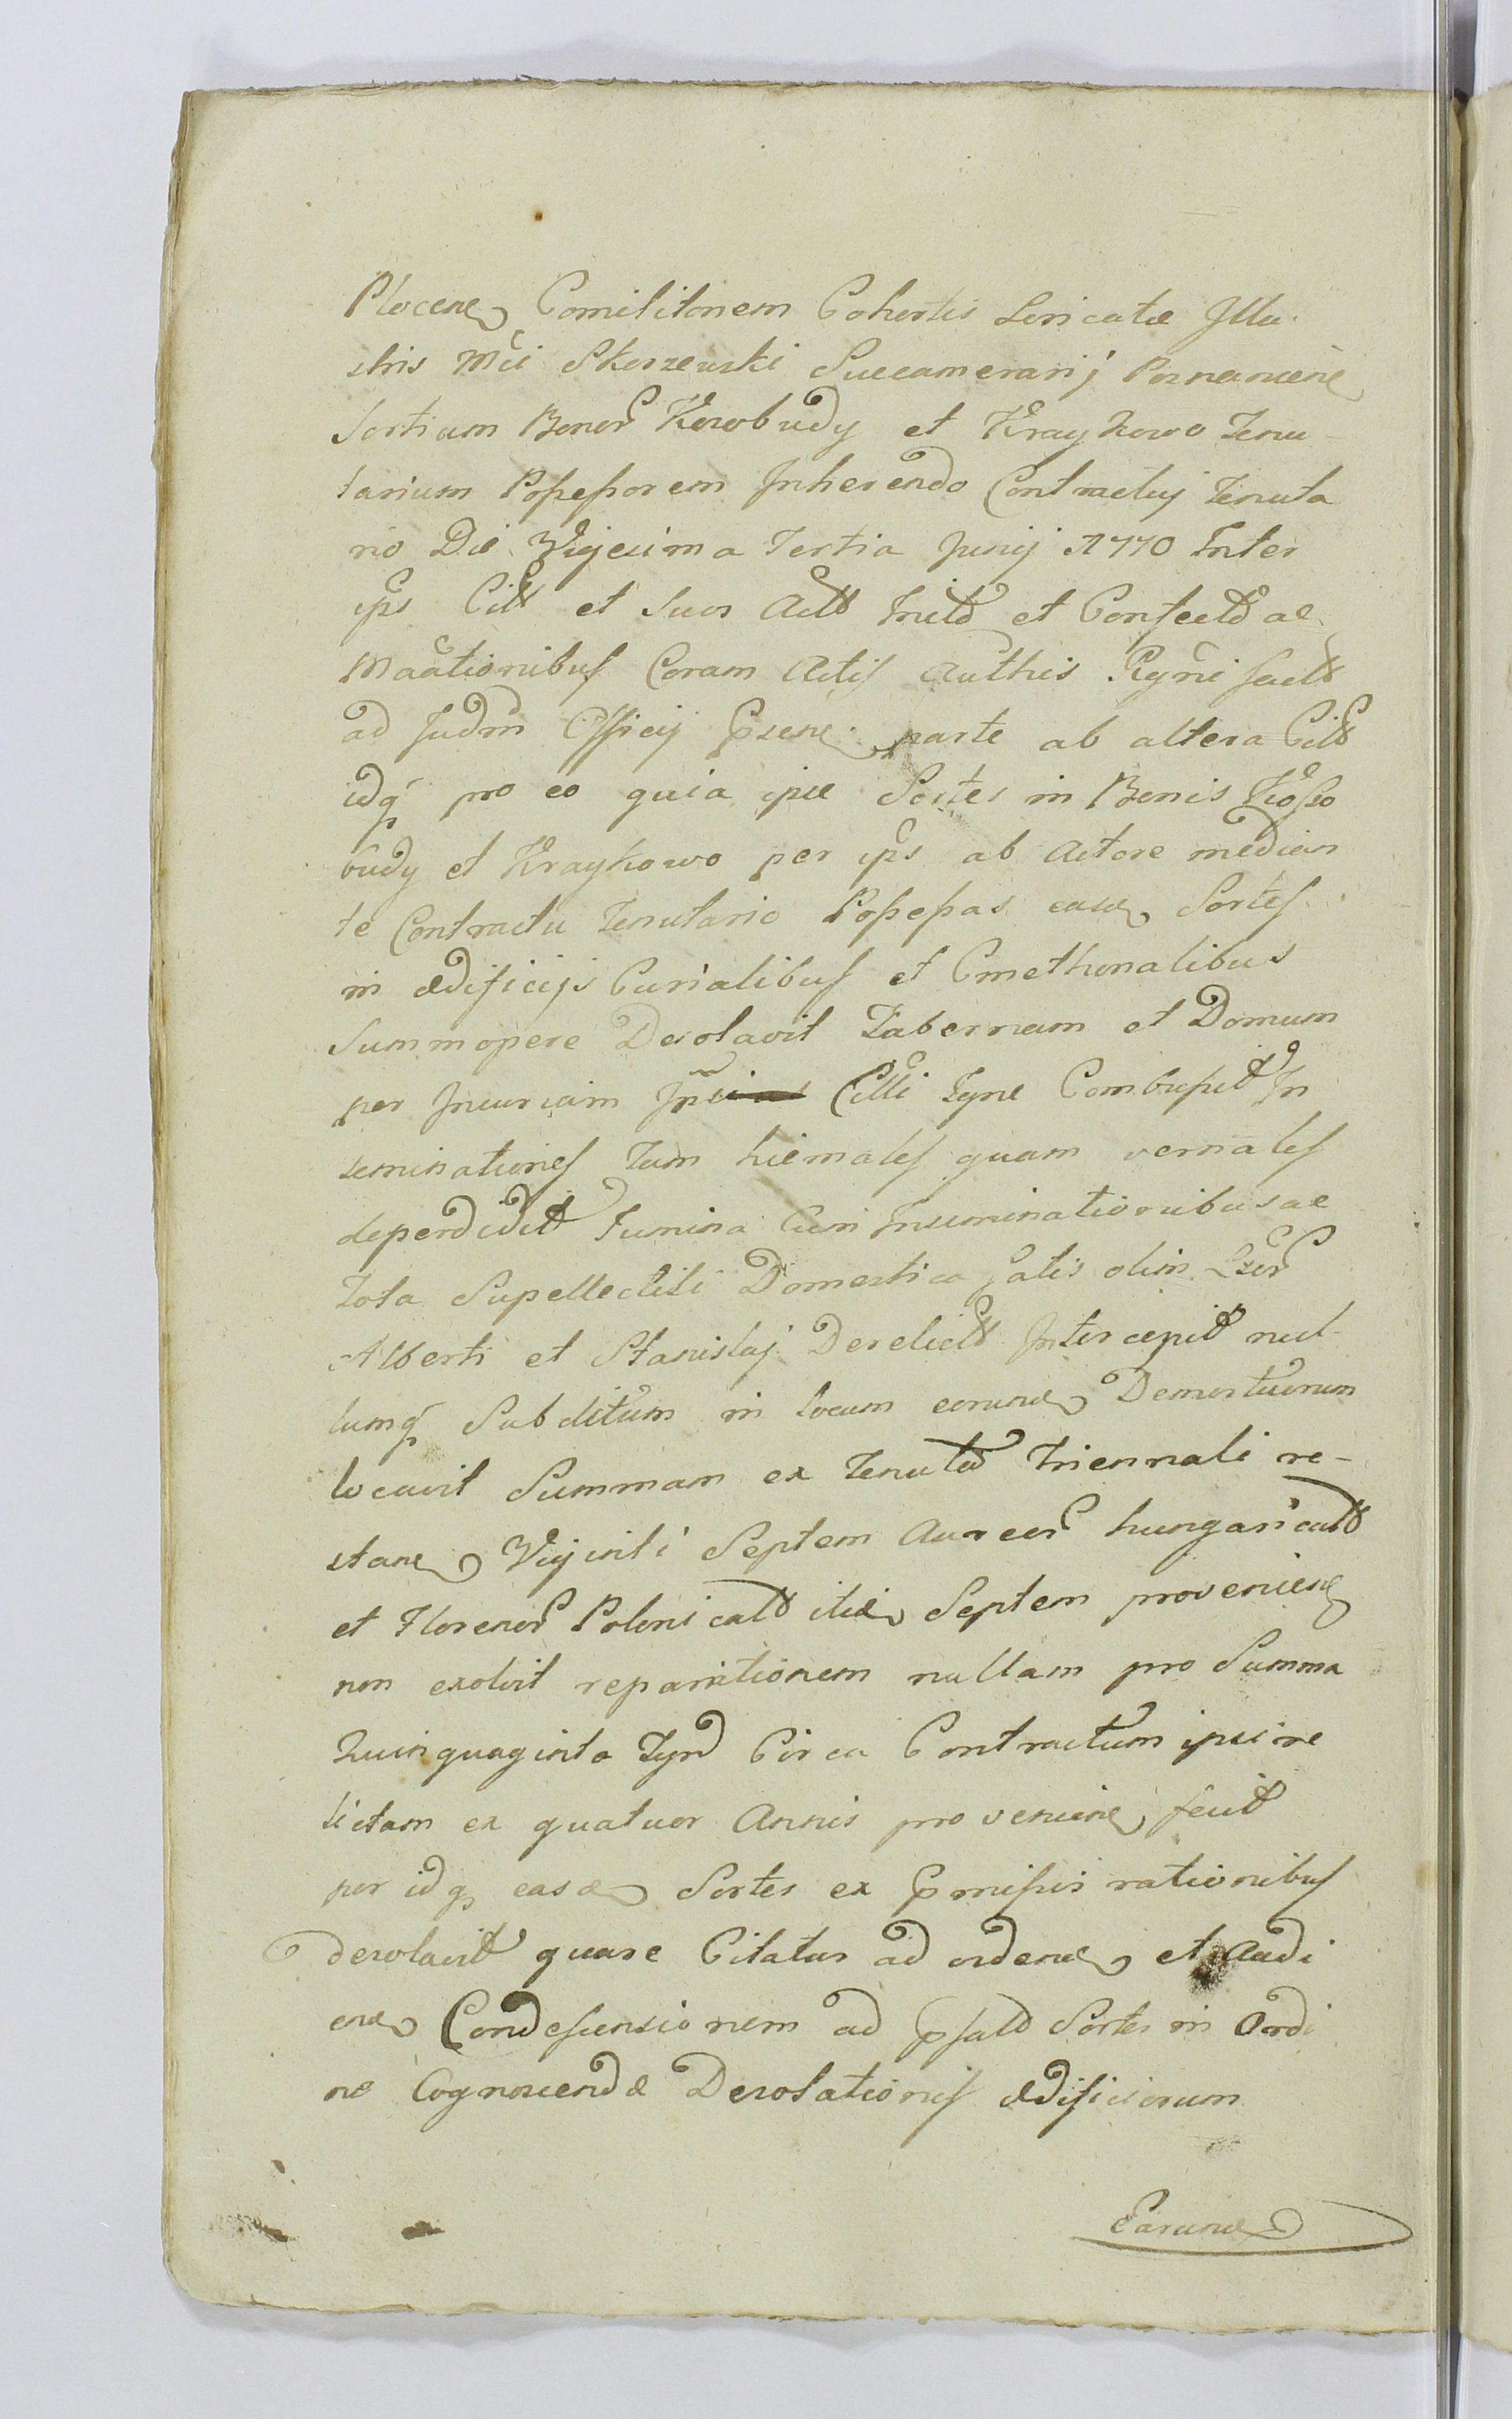 Plocen Comilitonem Cohortis Loricatæ Illu-
stris Mci Skorzewski Succamerarij Posnaniene
Sortium Bonor Kosobudy et Kraykowo Tenu-
tarium Possessorem Inherendo Contractuj Tenuta
rio Die Vigesima Tertia Junij 1770 Inter
ips Citt et Suos Actt Initt et Confectt ac
Maationibus Coram Actis Authis Rgni factt
ad Judm Officij psene parte ab altera Citt
idq pro eo quia ipse Sortes in Bonis Koso
budy et Kraykowo per ips ab Actore median
te Contractu Tenutario Possessas easd Sortes
in ædificijs Curialibus et Cmethonalibus
Summopere Desolavit Tabernam et Domum
per Incuriam Citti Igne Combussit In
seminationes Tam hiemales quam vernales
deperdidit Jumina Cum Inseminationibus ac
Tota Supellectili Domestica fatis olim Labor
Alberti et Stanislaj Derelictt Intercepit nul-
lumq Subditum in locum eorund Demortuorum
locavit Summam ex Tenuta Triennali re-
stan Viginti Septem Aureor hungaricalt
et Florenor Polonicalt itid Septem provenien
non exolvit reparationem nullam pro Summa
Quinquaginta Tynf Circa Contractum ipsi re
lictam ex quatuor Annis provenien fecit
per idq easd Sortes ex pmissis rationibus
desolavit quare Citatur ad viden et Audi
en Condescensionem ad psatt Sortes in Ordi
ne Cognoscendæ Desolationis ædificiorum
Earund